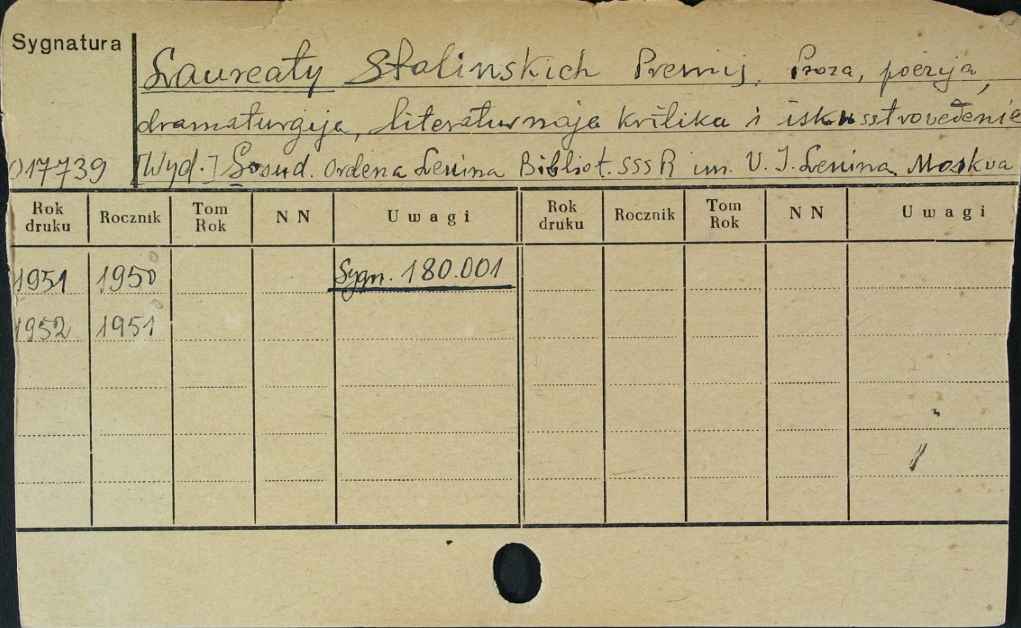 Sygnatura
Laureaty Stalinskich Premij. Proza, poèzija,
dramaturgija, literaturnaja kritika i iskusstrovedenie
017739 [Wyd.] Gosud. Ordena Lenina Bibliot. SSSR im. V. I. Lenina. Moskva
Rok druku Rocznik Tom Rok NN Uwagi Rok druku Rocznik Tom Rok NN Uwagi
1951 1950 Sygn. 180.001
1952 1951